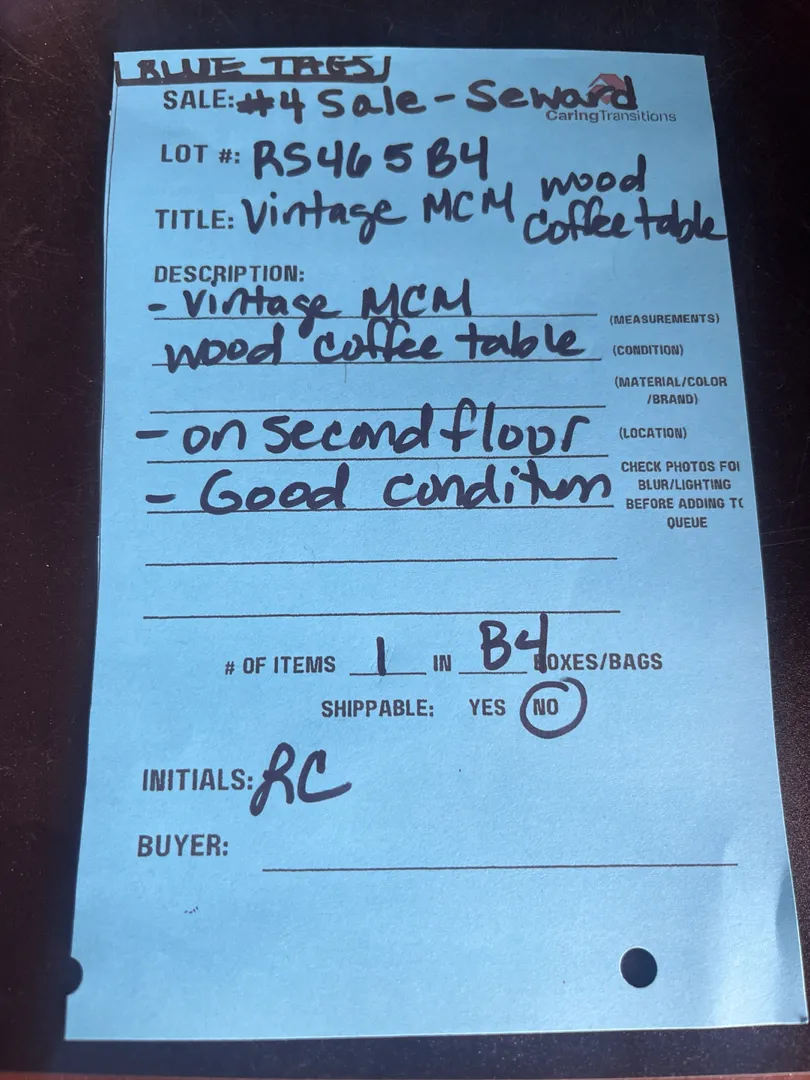 BLUE TAGS
SALE: #4 Sale - Seward
CaringTransitions
LOT #: RS465B4
TITLE: Vintage MCM wood
coffee table
DESCRIPTION:
- Vintage MCM
(MEASUREMENTS)
wood coffee table
(CONDITION)
(MATERIAL/COLOR
/BRAND)
- on second floor
(LOCATION)
- Good condition
CHECK PHOTOS FOR
BLUR/LIGHTING
BEFORE ADDING TO
QUEUE
# OF ITEMS 1 IN B4 BOXES/BAGS
SHIPPABLE: YES NO
INITIALS: RC
BUYER: